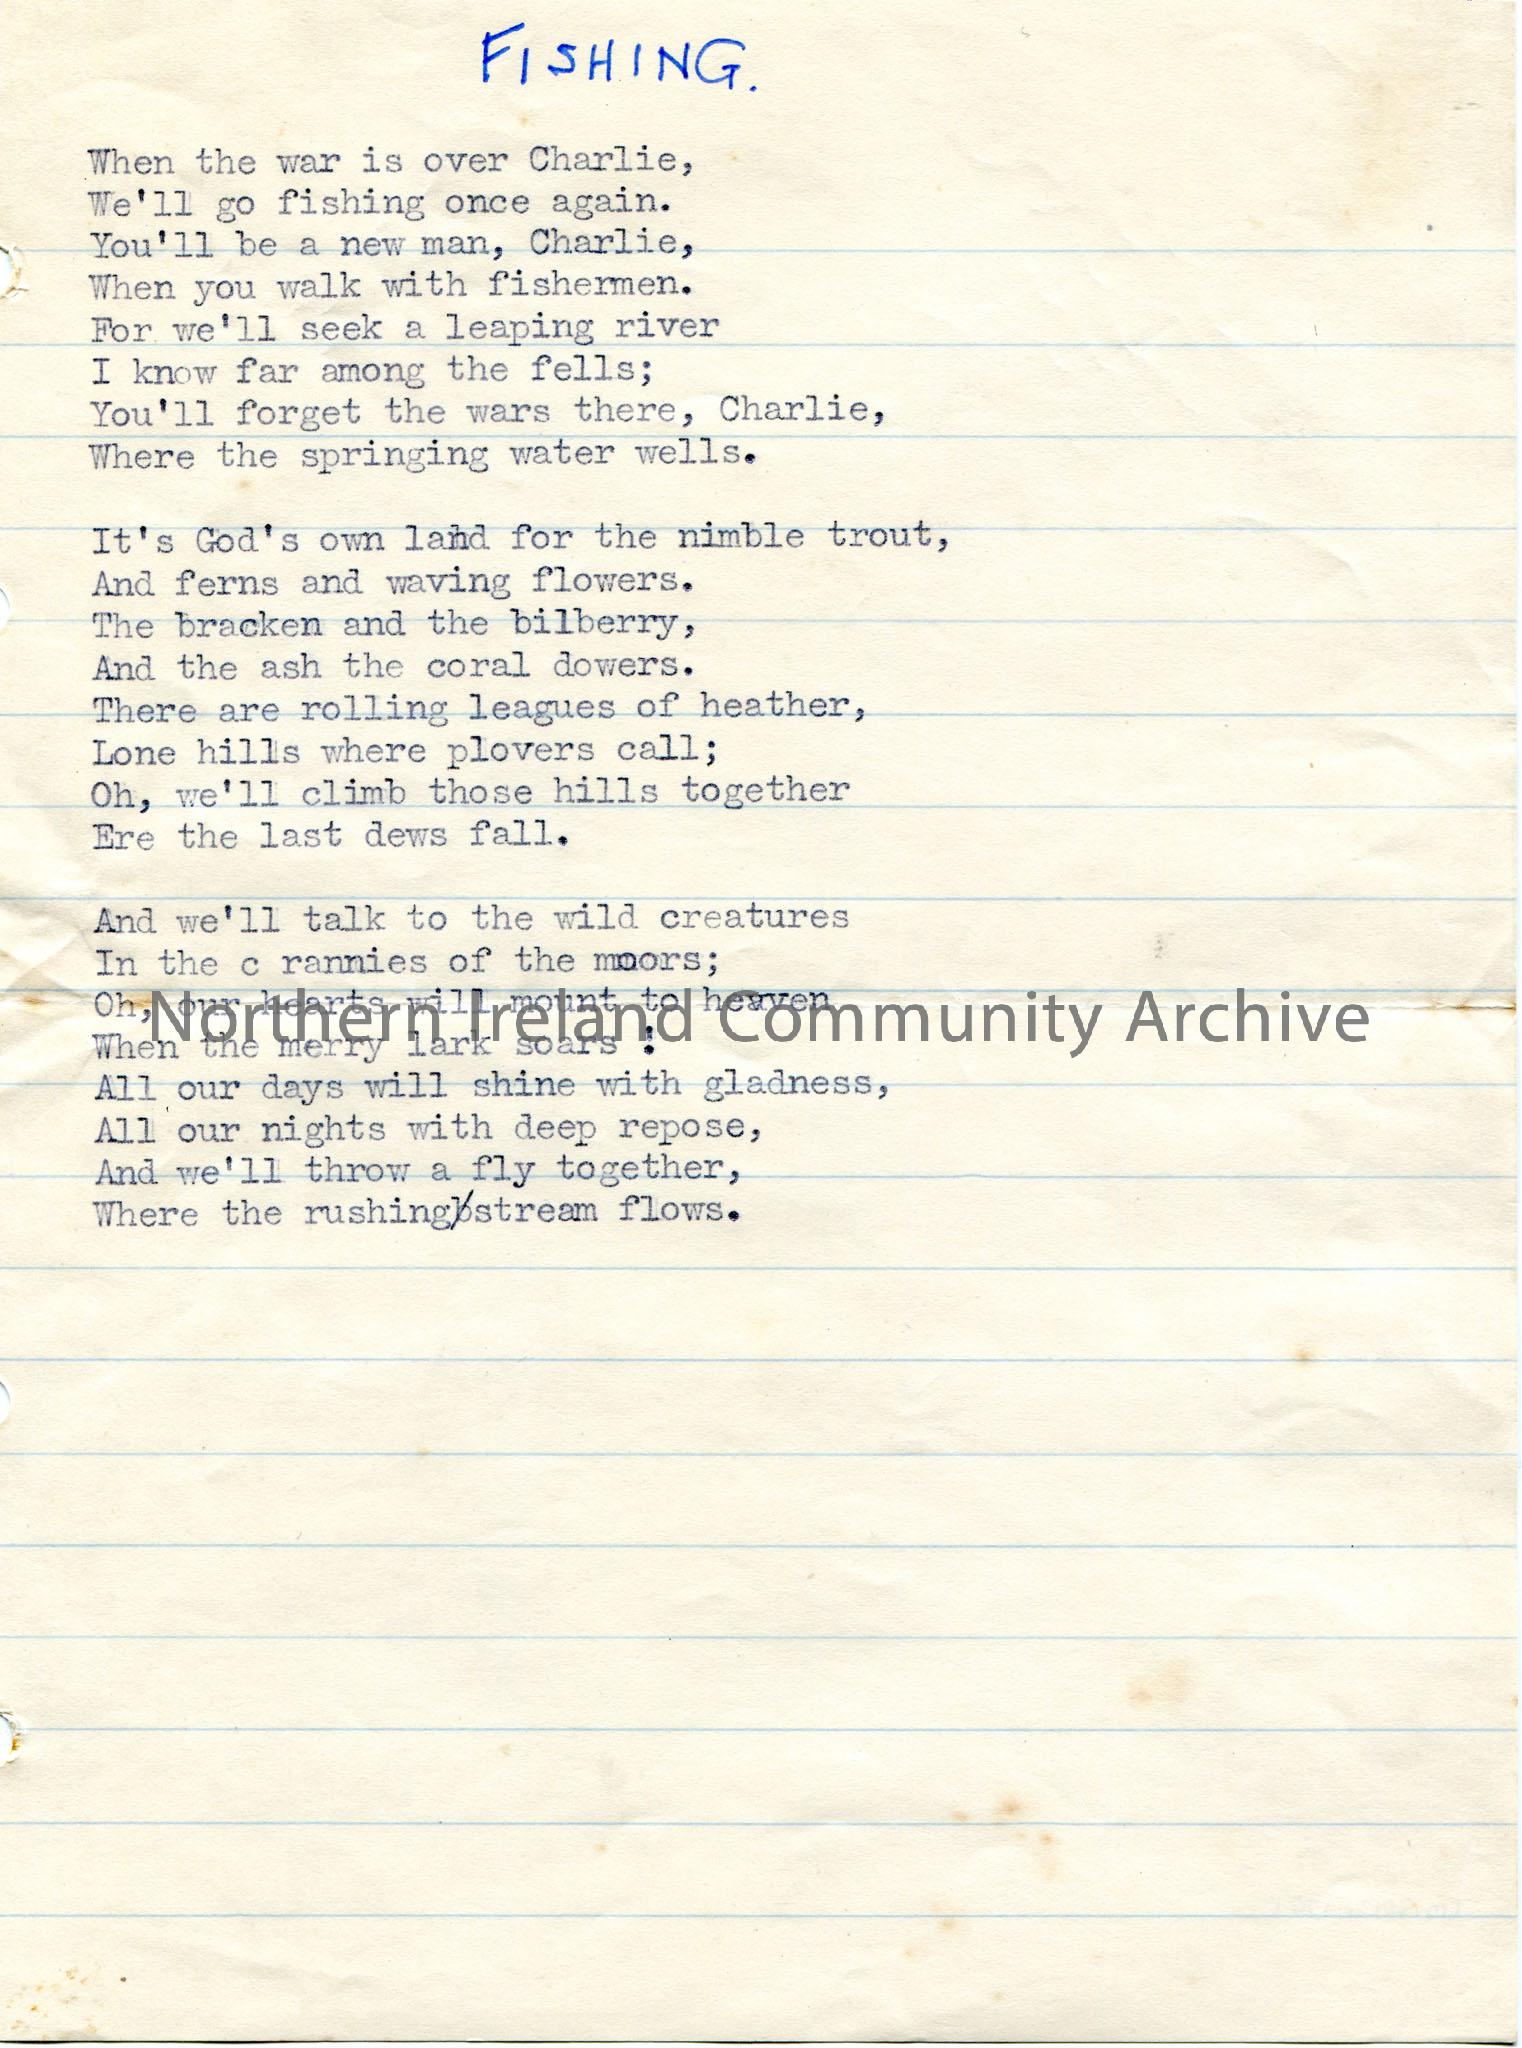 FISHING.

When the war is over Charlie,
We'll go fishing once again.
You'll be a new man, Charlie,
When you walk with fishermen.
For we'll seek a leaping river
I know far among the fells;
You'll forget the wars there, Charlie,
Where the springing water wells.

It's God's own land for the nimble trout,
And ferns and waving flowers.
The bracken and the bilberry,
And the ash the coral dowers.
There are rolling leagues of heather,
Lone hills where plovers call;
Oh, we'll climb those hills together
Ere the last dews fall.

And we'll talk to the wild creatures
In the c rannies of the moors;
Oh, our hearts will mount to heaven
Northern Ireland Community Archive
When the merry lark soars !
All our days will shine with gladness,
All our nights with deep repose,
And we'll throw a fly together,
Where the rushing stream flows.